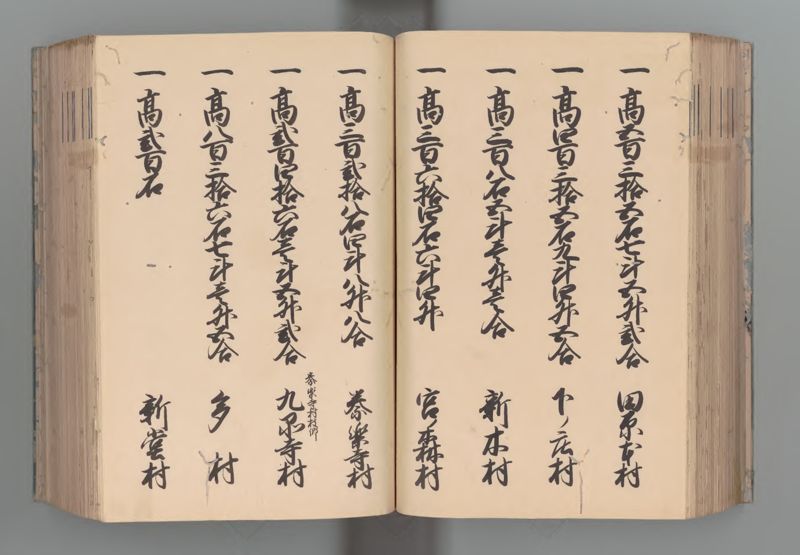 一 高五百三拾五石七斗五升弐合 田原本村
一 高四百三拾五石九斗四升五合 下ノ庄村
一 高三百八石五斗壱升壱合 新木村
一 高三百六拾四石六斗四升 宮森村
一 高三百弐拾八石四斗八升八合 秦楽寺村
一 高弐百四拾六石壱斗五升弐合 九品寺村
秦楽寺村枝郷
一 高八百三拾六石七斗壱升五合 多村
一 高弐百石 新堂村